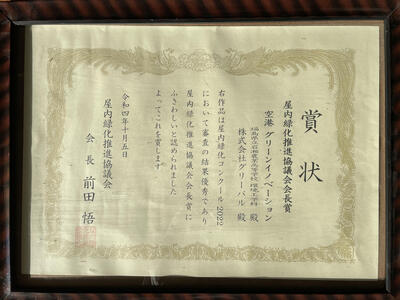 賞状
屋内緑化推進協議会会長賞
空港 グリーンイノベーション
福島県立岩瀬農業高等学校 環境工学科 殿
株式会社グリーバル 殿
右作品は屋内緑化コンクール2022
において審査の結果優秀であり
屋内緑化推進協議会会長賞に
ふさわしいと認められました
よってこれを賞します
令和四年十月五日
屋内緑化推進協議会
会長 前田 悟